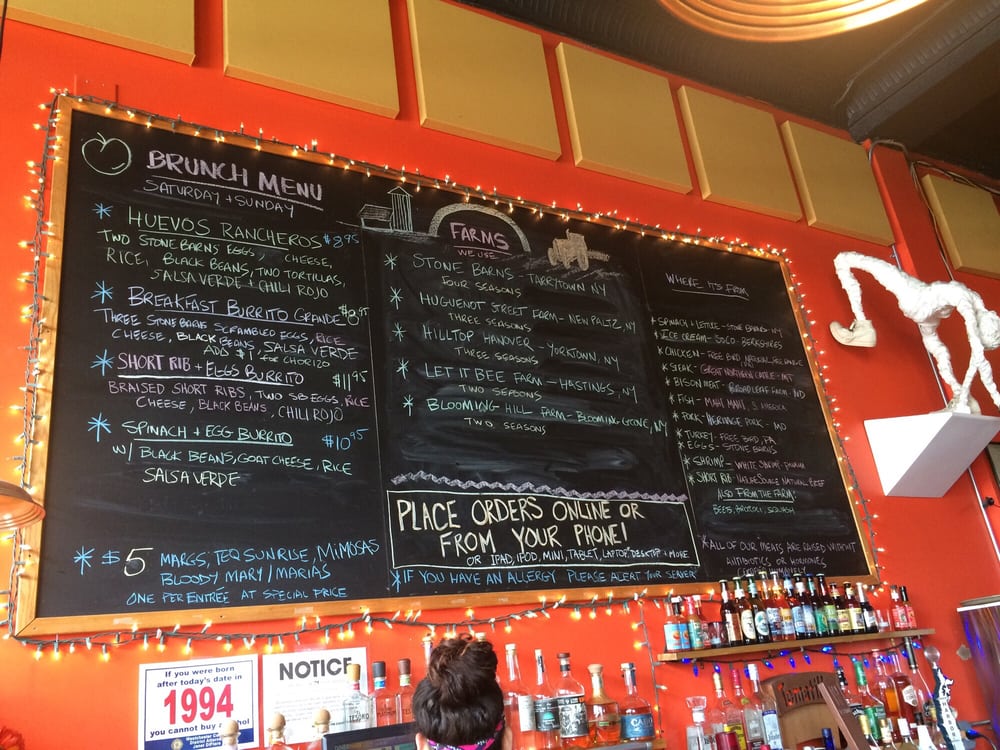 BRUNCH MENU
SATURDAY + SUNDAY
* HUEVOS RANCHEROS $8.95
TWO STONE BARNS EGGS, CHEESE,
RICE, BLACK BEANS, TWO TORTILLAS,
SALSA VERDE + CHILI ROJO
* BREAKFAST BURRITO GRANDE $8.95
THREE STONE BARNS SCRAMBLED EGGS, RICE
CHEESE, BLACK BEANS, SALSA VERDE
ADD $1 for CHORIZO
* SHORT RIB + EGGS BURRITO $11.95
BRAISED SHORT RIBS, TWO SB EGGS, RICE
CHEESE, BLACK BEANS, CHILI ROJO
* SPINACH + EGG BURRITO $10.95
W/ BLACK BEANS, GOAT CHEESE, RICE
SALSA VERDE
* $5 MARGS, TEQ SUNRISE, MIMOSAS
BLOODY MARY / MARIAS
ONE PER ENTRÉE AT SPECIAL PRICE
FARMS
WE USE
* STONE BARNS - TARRYTOWN NY
FOUR SEASONS
* HUGUENOT STREET FARM - NEW PALTZ, NY
THREE SEASONS
* HILLTOP HANOVER - YORKTOWN, NY
THREE SEASONS
* LET IT BEE FARM - HASTINGS, NY
TWO SEASONS
* BLOOMING HILL FARM - BLOOMING GROVE, NY
TWO SEASONS
PLACE ORDERS ONLINE OR
FROM YOUR PHONE!
OR IPAD, IPOD, MINI, TABLET, LAPTOP, DESKTOP + MORE
* IF YOU HAVE AN ALLERGY PLEASE ALERT YOUR SERVER
WHERE IT'S FROM
* SPINACH + LETTUCE - STONE BARNS - NY
* ICE CREAM - SOCO - BERKSHIRES
* CHICKEN - FREE BIRD
* STEAK - GREAT NORTHERN CATTLE - MT
* BISON MEAT - BROADLEAF FARM, ND
* FISH - MAHI MAHI
* PORK - HERITAGE PORK - MO
* TURKEY - FREE BIRD, PA
* EGGS - STONE BARNS
* SHRIMP - WHITE SHRIMP - PANAMA
* SHORT RIB - NATURE SOURCE NATURAL BEEF
ALSO FROM THE FARM:
BEETS, BROCOLI, SQUASH
* ALL OF OUR MEATS ARE RAISED WITHOUT
ANTIBIOTICS OR HORMONES
HUMANELY
If you were born
after today's date in
1994
you cannot buy alcohol
NOTICE